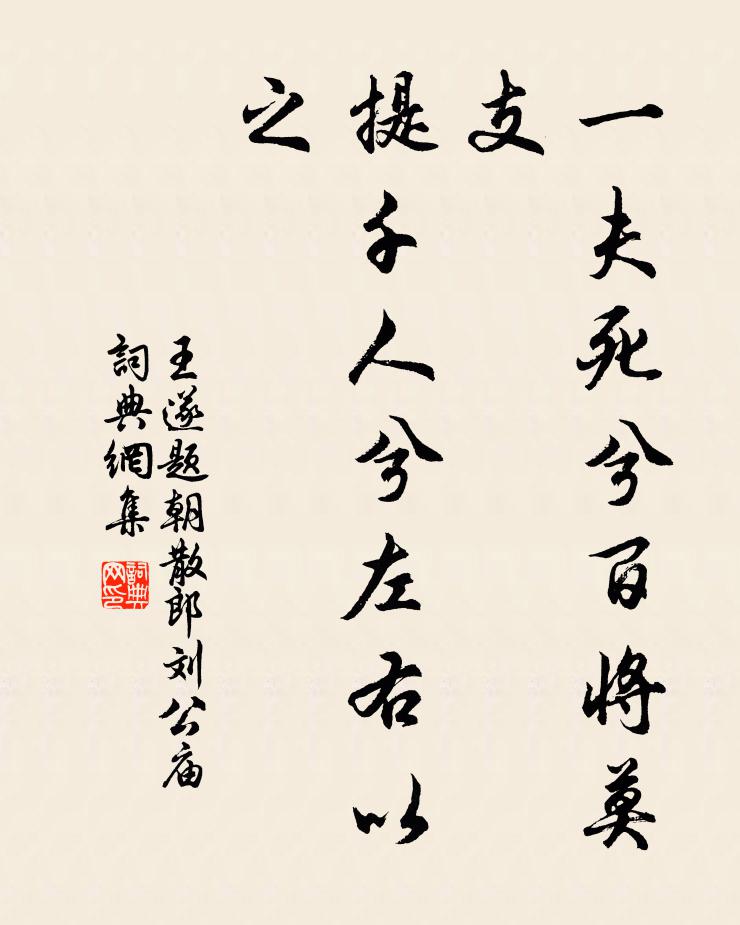 一夫死兮百将莫
支
提千人兮左右以
之
王遂题朝散郎刘公庙
詞典網集
詞典网印